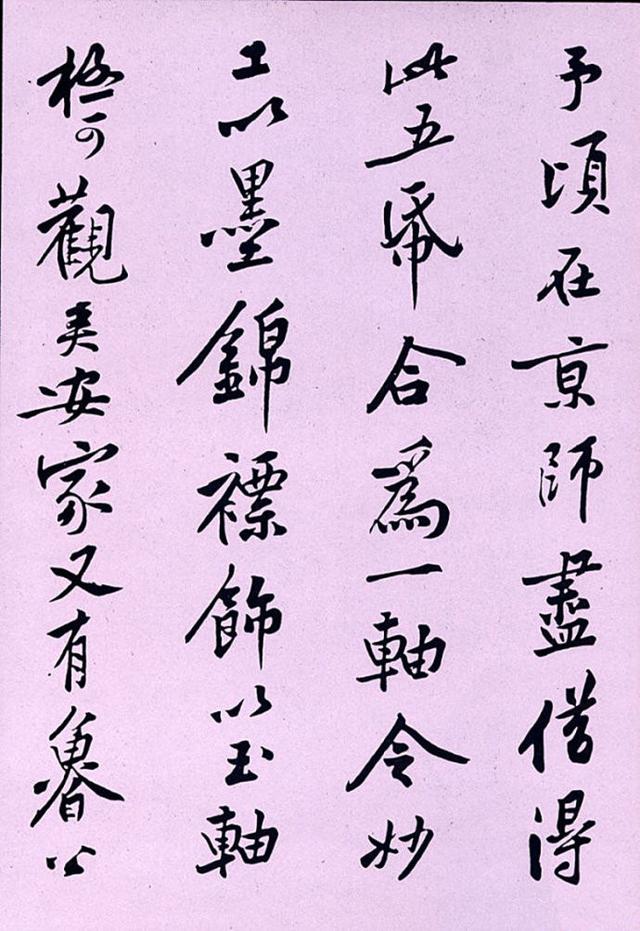 予頃在京師盡借得
此五帋合爲一軸令妙
工以墨錦褾飾以玉軸
極可觀吳安家又有魯公